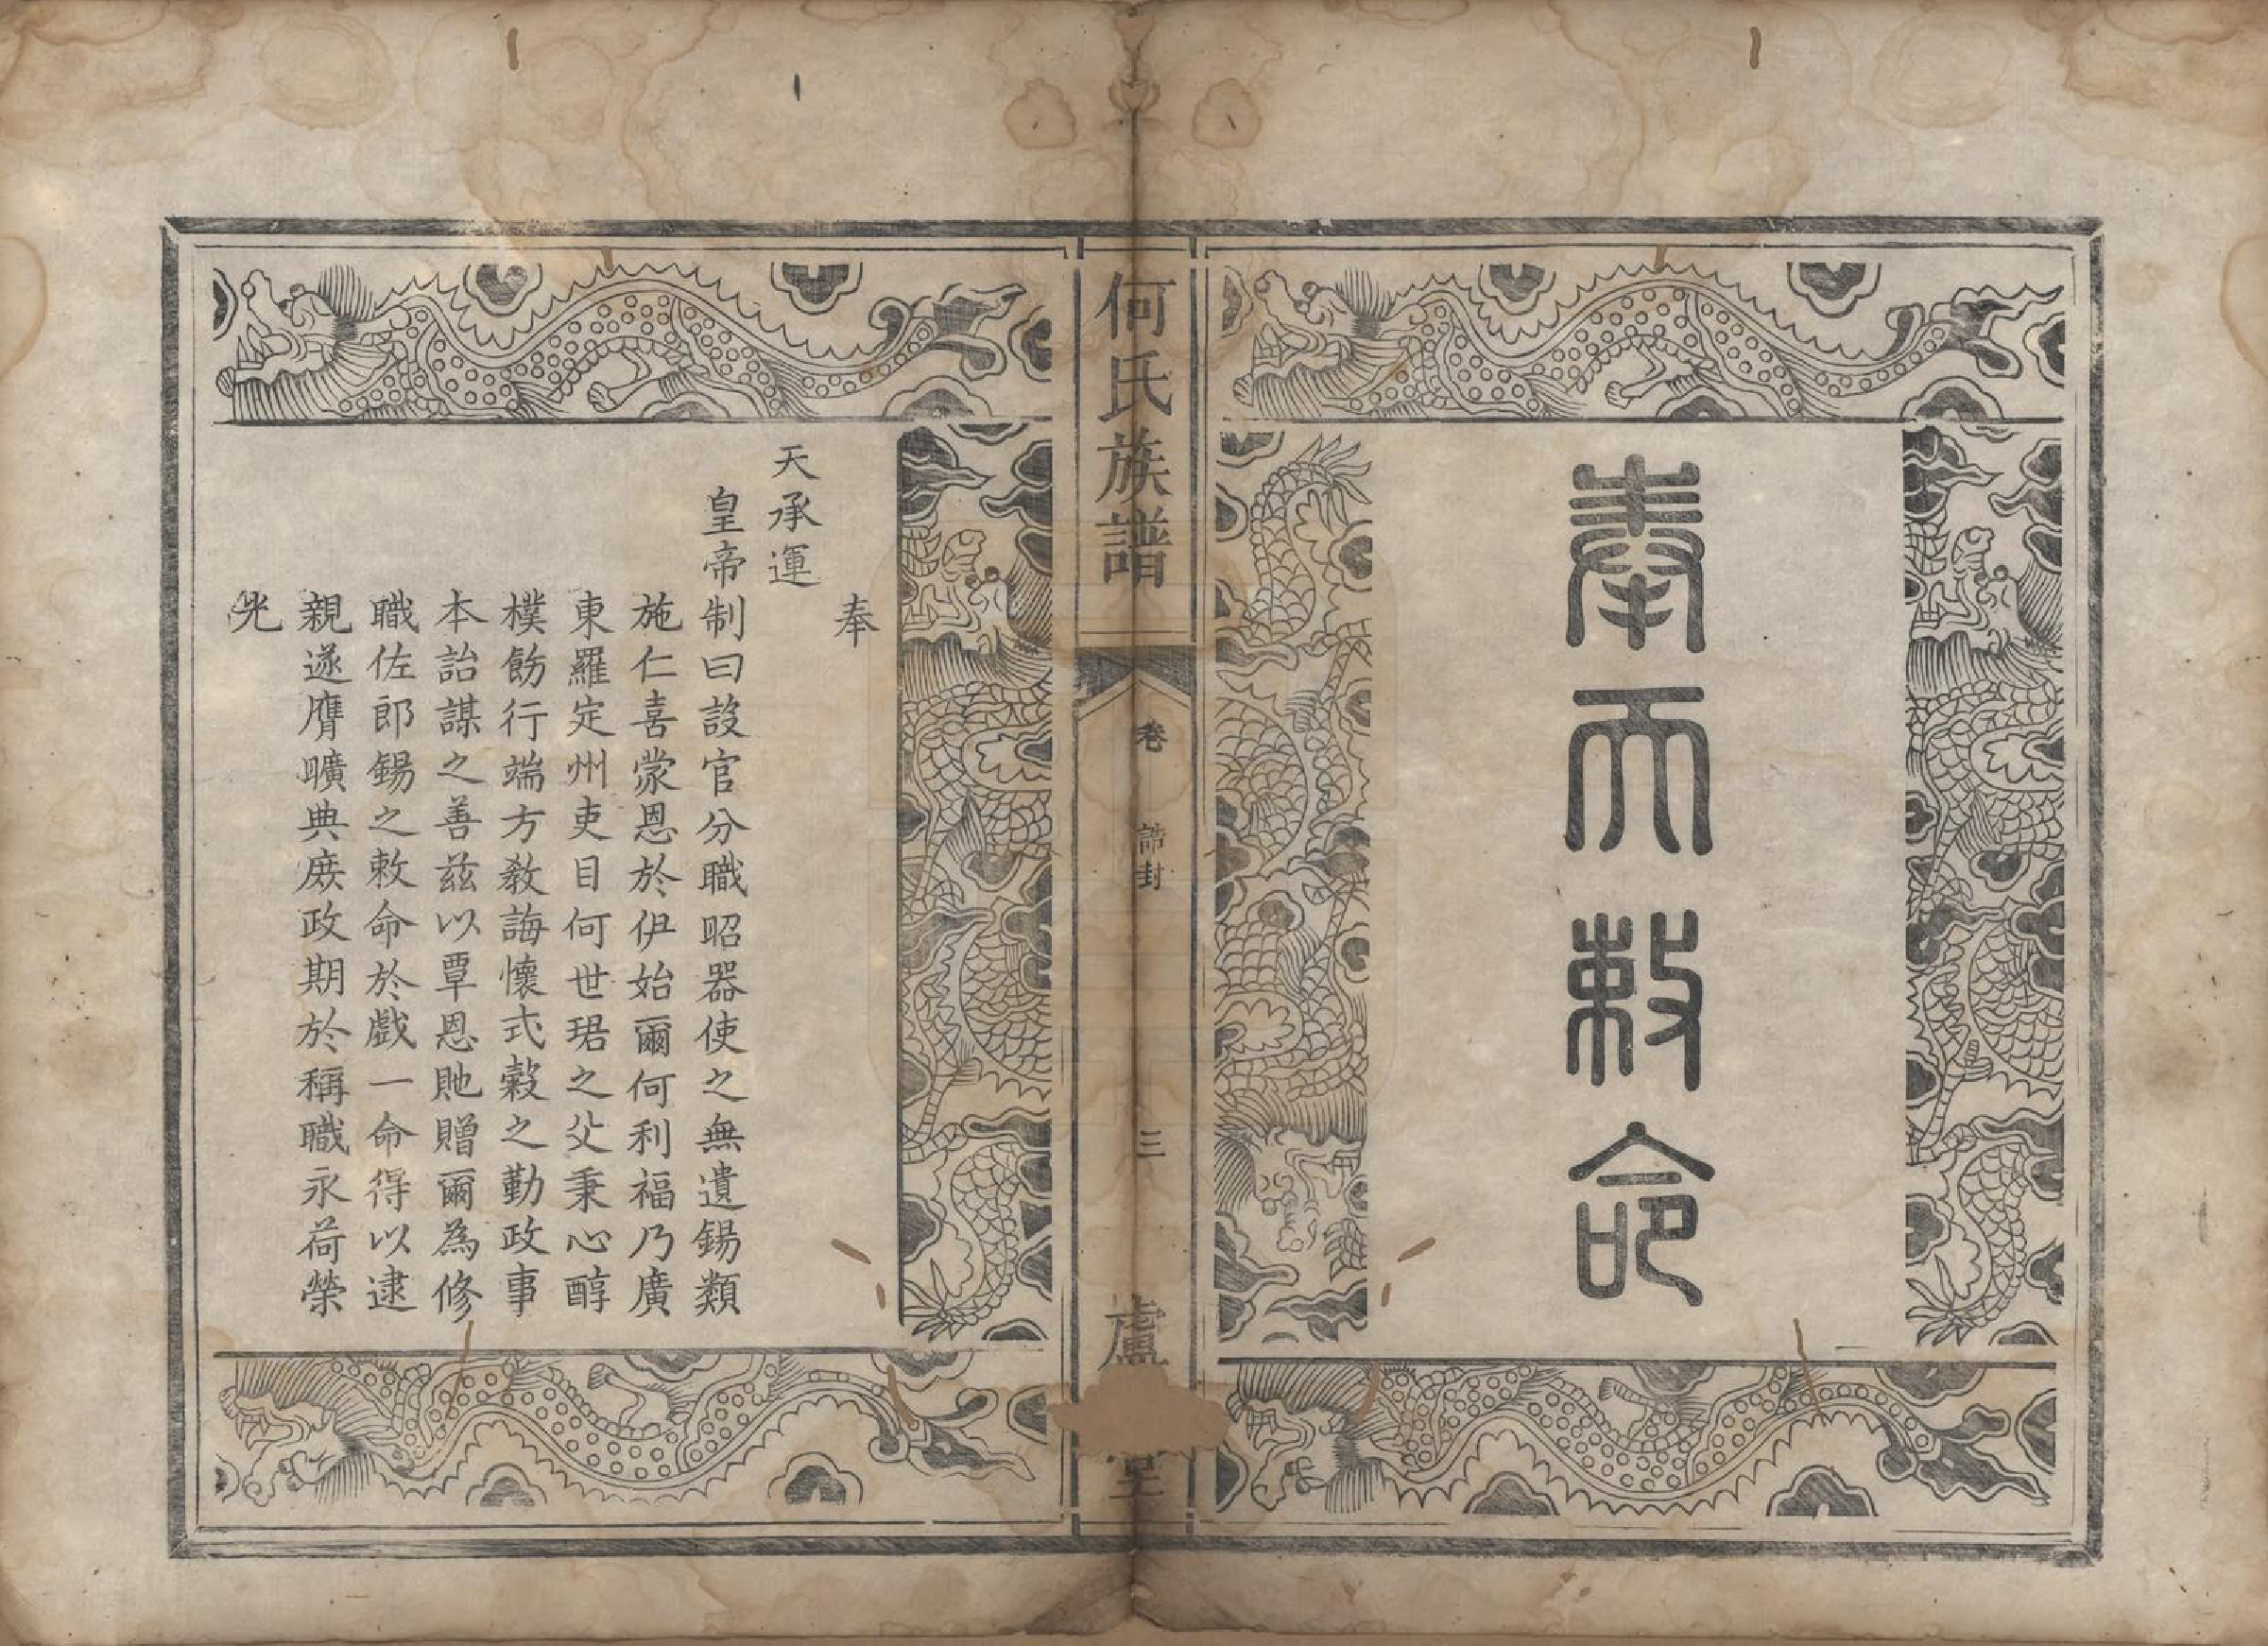 奉天敕命
何氏族譜
卷
誥封
三
盧
堂
奉
天承運
皇帝制曰設官分職昭器使之無遺錫類
施仁喜蒙恩於伊始爾何利福乃廣
東羅定州吏目何世珺之父秉心醇
樸飭行端方教誨懷式穀之勤政事
本詒謀之善茲以覃恩貤贈爾為修
職佐郎錫之敕命於戲一命得以逮
親遂膺曠典庻政期於稱職永荷榮
光